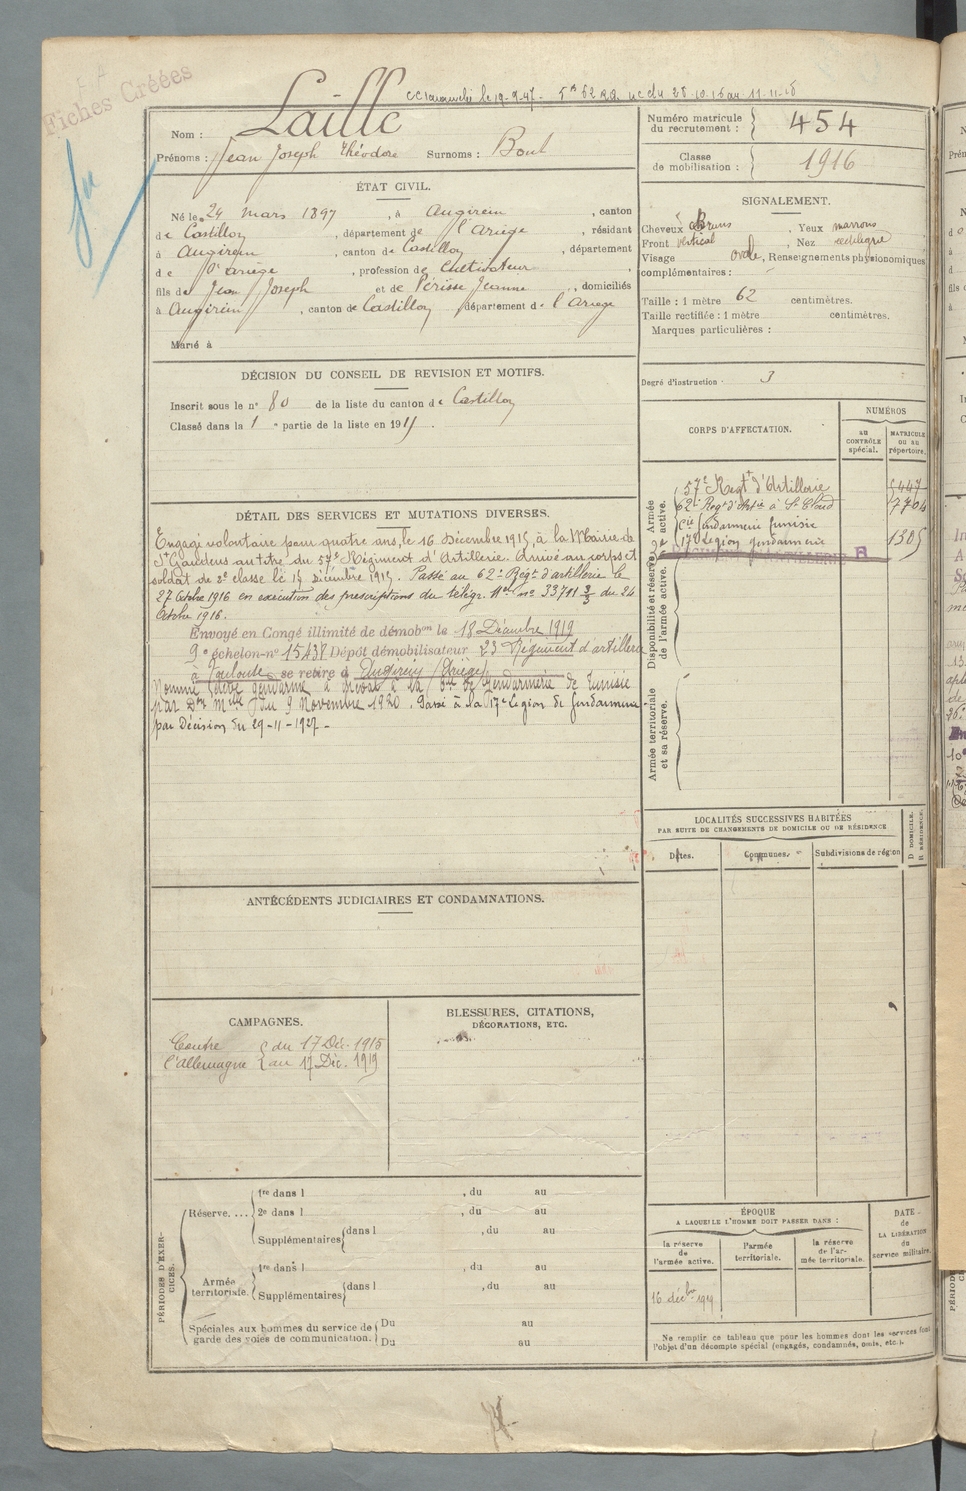 Fiches Créées
Laille
Nom :
Prénoms : Jean Joseph Théodore Surnoms : Bout
Numéro matricule du recrutement : 454
Classe de mobilisation : 1916
ÉTAT CIVIL.
Né le 24 mars 1897, à Augirein, canton
de Castillon, département de l'Ariège, résidant
à Augirein, canton de Castillon, département
de l'ariège, profession de Cultivateur
fils de Jean Joseph et de Périsse Jeanne, domiciliés
à Augirein, canton de Castillon, département de l'Ariège
Marié à
SIGNALEMENT.
Cheveux Bruns, Yeux marrons
Front vertical, Nez rectiligne
Visage ovale, Renseignements physionomiques
complémentaires :
Taille : 1 mètre 62 centimètres.
Taille rectifiée : 1 mètre centimètres.
Marques particulières :
Degré d'instruction : 3
DÉCISION DU CONSEIL DE REVISION ET MOTIFS.
Inscrit sous le n° 80 de la liste du canton de Castillon
Classé dans la 1e partie de la liste en 191
CORPS D'AFFECTATION.
NUMÉROS
au CONTRÔLE spécial.
MATRICULE ou au répertoire.
Armée active.
57e Regt d'Artillerie 5447
62e Regt d'Artie à St Cloud 7704
Cie Gendarmerie Tunisie
17e Légion gendarmerie 1305
Disponibilité et réserve de l'armée active.
Armée territoriale et sa réserve.
DÉTAIL DES SERVICES ET MUTATIONS DIVERSES.
Engagé volontaire pour quatre ans, le 16 Décembre 1915, à la Mairie de
St Gaudens au titre du 57e Régiment d'Artillerie. Arrivé au corps et
soldat de 2e classe le 17 Décembre 1915. Passé au 62e Régt d'artillerie le
27 Octobre 1916 en exécution des prescriptions du télégr. Mel no 33711 3/3 du 24
Octobre 1916.
Envoyé en Congé illimité de démobon le 18 Décembre 1919
9e échelon-n° 15438 Dépôt démobilisateur 23 Régiment d'artillerie
à Toulouse se retire à Augirein (Ariège)
Nommé élève gendarme à à la Cie de Gendarmerie de Tunisie
par Don Mlle du 9 Novembre 1920. Passé à la 17e Légion de Gendarmerie
par Décision du 29-11-1927-
LOCALITÉS SUCCESSIVES HABITÉES
PAR SUITE DE CHANGEMENTS DE DOMICILE OU DE RÉSIDENCE
Dates. Communes. Subdivisions de région
D DOMICILE. R RÉSIDENCE.
ANTÉCÉDENTS JUDICIAIRES ET CONDAMNATIONS.
CAMPAGNES.
Contre du 17 Déc. 1915
l'Allemagne au 17 Déc. 1919
BLESSURES, CITATIONS,
DÉCORATIONS, ETC.
PÉRIODES D'EXERCICES.
Réserve.... 1re dans l , du au
2e dans l , du au
Supplémentaires dans l , du au
, du au
Armée territoriale. 1re dans l , du au
Supplémentaires dans l , du au
Spéciales aux hommes du service de garde des voies de communication. Du au
Du au
ÉPOQUE
A LAQUELLE L'HOMME DOIT PASSER DANS :
la réserve de l'armée active.
l'armée territoriale.
la réserve de l'armée territoriale.
DATE de LA LIBÉRATION du service militaire.
16 décbre 1919
Ne remplir ce tableau que pour les hommes dont les services font
l'objet d'un décompte spécial (engagés, condamnés, omis, etc.).